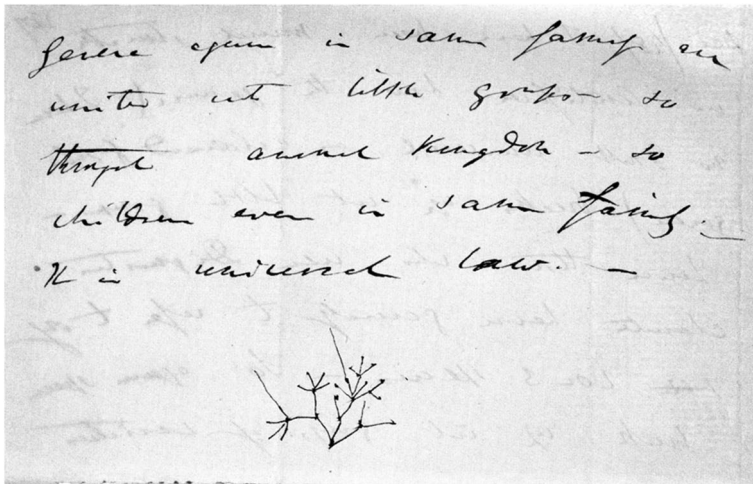 Genera again in same family are
united into little groups so
through animal Kingdom – so
children even in same family. –
It is universal law. –